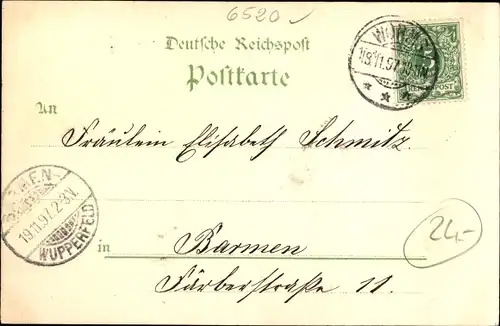 6520.-
Deutsche Reichspost
Postkarte
WORMS
19.11.97.
An
Fräulein Elisabeth Schmitz.
BARMEN
19.11.97. 2-3N.
WUPPERFELD
24,-
in Barmen
Färberstraße 11.